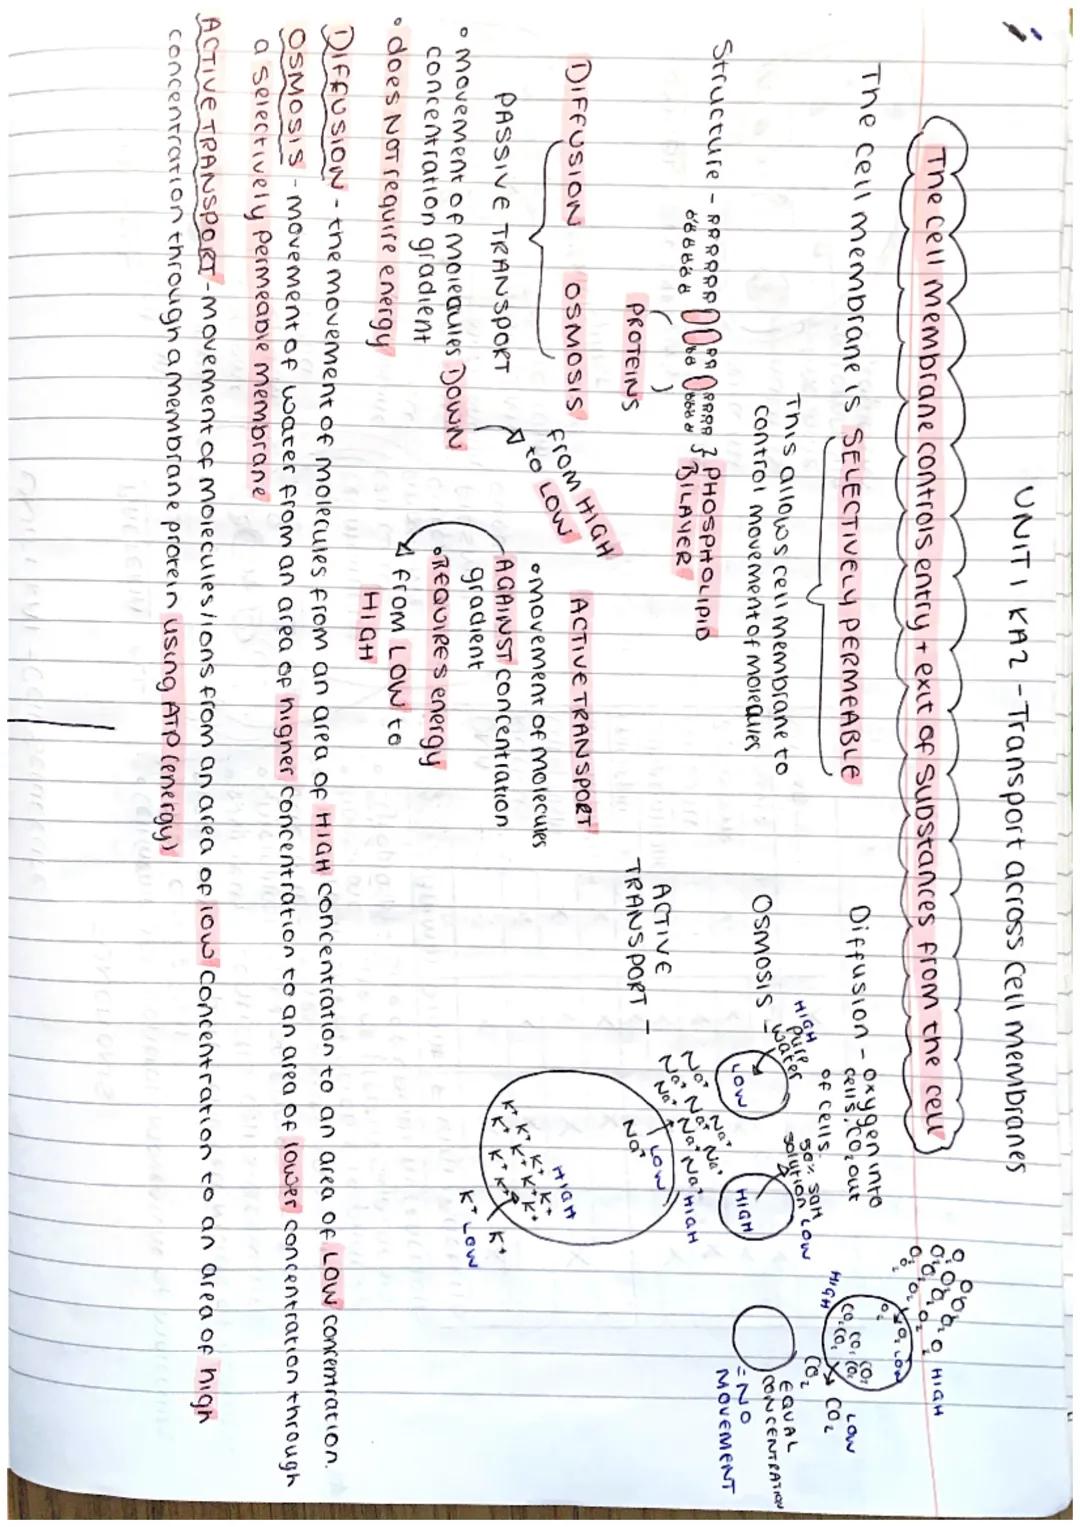 UNIT 1 KA2 - Transport across cell membranes
The cell membrane controls entry + exit of substances from the cell
The cell membrane is SELECTIVELY PERMEABLE
This allows cell membrane to
control movement of molecules
Structure -
} PHOSPHOLIPID
BILAYER
PROTEINS
DIFFUSION OSMOSIS
PASSIVE TRANSPORT
• movement of molecules DOWN
concentration gradient
• does NOT require energy
from HIGH
to LOW
ACTIVE TRANSPORT
• movement of molecules
AGAINST concentration
gradient
• REQUIRES energy
from LOW to
HIGH
Diffusion - oxygen into
cells, CO2 out
of cells.
O2 O2 O2 O2 O2 O2 O2 O2 HIGH
O2 O2 LOW
CO2 CO2 CO2 CO2 CO2
HIGH
CO2 CO2 LOW
OSMOSIS -
HIGH pure
water
LOW
50% salt
solution LOW
HIGH
EQUAL
CONCENTRATION
= NO
MOVEMENT
ACTIVE
TRANSPORT -
Na+ Na+ Na+ Na+ Na+ Na+ Na+ Na+ HIGH
Na+ LOW
K+ K+ K+ K+ K+ K+ K+ K+ K+ HIGH
K+ K+ LOW
DIFFUSION - the movement of molecules from an area of HIGH concentration to an area of LOW concentration.
OSMOSIS - movement of water from an area of higher concentration to an area of lower concentration through
a selectively permeable membrane
ACTIVE TRANSPORT - movement of molecules/ions from an area of low concentration to an area of high
concentration through a membrane protein using ATP (energy)